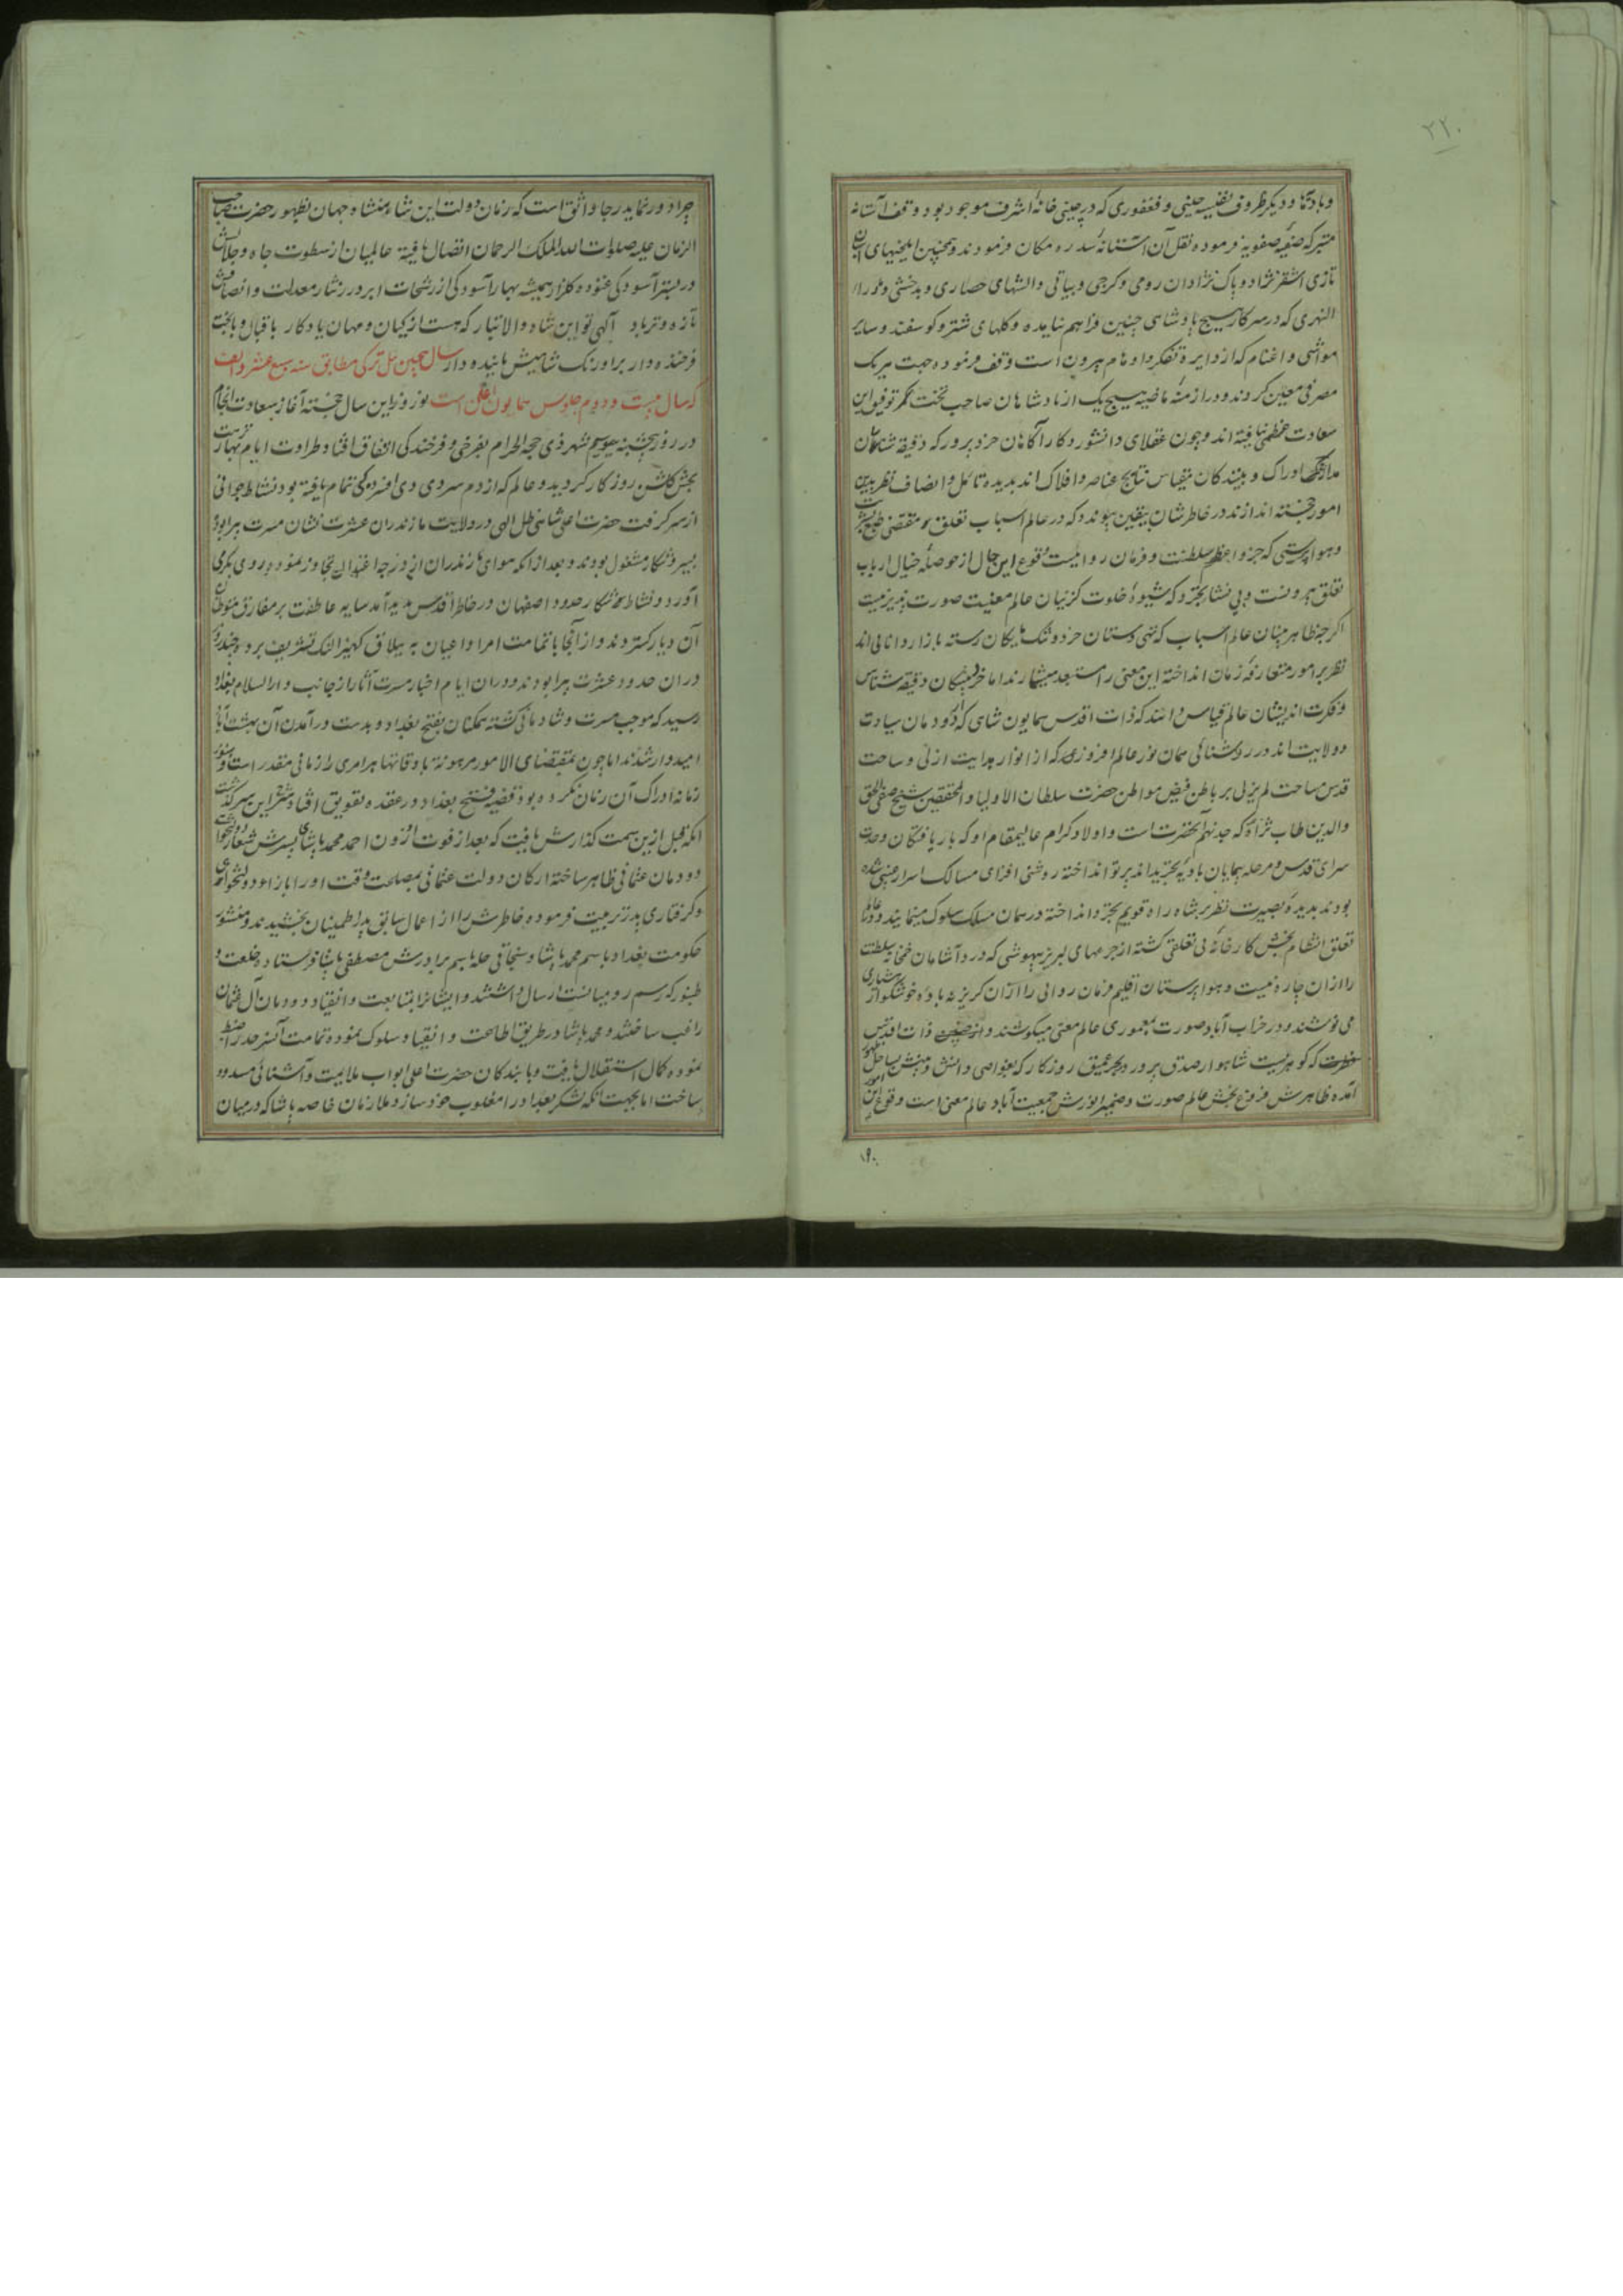 ۲۲۰
وبادیها و دیکر ظروف نفیسه چینی و فغفوری که در چینی خانهٔ اشرف موجود بود وقف آستانه
متبرکه صفیهٔ صفویه فرموده نقل آن آستانهٔ سدره مکان فرمودند و همچنین ایلخیهای اسبان
تازی اشقر نژاد و پاک نژادان رومی و کرجی و بیاتی والشهای حصاری و بدخشی و ماوراء
النهری که در سرکار هیچ پادشاهی چنین فراهم نیامده و کلهای شتر و کوسفند و سایر
مواشی و اغنام که از دایرهٔ تفکر و اوهام بیرون است وقف فرموده جهت هر یک
مصرفی معین کردند و در ازمنهٔ ماضیه هیچ یک از پادشاهان صاحب تخت مکر توفیق این
سعادت عظمی نیافته اند و چون عقلای دانشور و کار آکاهان خرد پرور که دقیقه شناسان
مدارک ادراک و بینندکان مقیاس نتایج عناصر و افلاک اند بدیده تامل و انصاف نظر بدین
امور خجسته اندازند در خاطرشان بیقین پیوندد که در عالم اسباب تعلق که مقتضی طبع بشریت
وهواپرستی که جزو اعظم سلطنت و فرمان رواییست وقوع این حال از حوصلهٔ خیال ارباب
تعلق بیرونست و بی نشاء تجرد که شیوهٔ خلوت کزینان عالم معنیست صورت پذیر نیست
اکرچه ظاهر بینان عالم اسباب که تهی دستان خرد و تنک مایکان رسته بازار دانایی اند
نظر بر امور متعارفهٔ زمان انداخته این معنی را مستبعد میشمارند اما خرد پیشکان دقیقه شناس
و فکرت اندیشان عالم قیاس دانند که ذات اقدس همایون شاهی که از دودمان سیادت
و ولایت اند در روشنائی همان نور عالم افروزی که از انوار هدایت ازلی و ساحت
قدس مساحت لم یزلی بر باطن فیض مواطن حضرت سلطان الاولیا و المحققین شیخ صفی الحق
والدین طاب ثراه که جد نهم آنحضرت است و اولاد کرام عالیمقام او که بار یافتکان وحدت
سرای قدس و مرحله پیمایان بادیهٔ تجریداند پرتو انداخته روشنی افزای مسالک اسرار غیبی شده
بودند بدیدهٔ بصیرت نظر بر شاه راه قویم تجرد انداخته در همان مسلک سلوک مینمایند و در عالم
تعلق انتظام بخش کارخانهٔ بی تعلقی کشته از جرعهای لبریز بیهوشی که درد آشامان خمخانهٔ سلطنت
را از ان چاره نیست و هواپرستان اقلیم فرمان روائی را از آن کریز نه بادهٔ خوشکوار هشیاری
می نوشند و در خراب آباد صورت بمعموری عالم معنی میکوشند و ذات اقدس
که کوهریست شاهوار صدف پرور در بحر عمیق روزکار که بغواصی دانش و بینش بساحل ظهور
آمده ظاهرش فروغ بخش عالم صورت و ضمیر انورش جمعیت آباد عالم معنی است وقوع این امور
چرا دور نماید رجا واثق است که زمان دولت این شاهنشاه جهان بظهور حضرت صاحب
الزمان علیه صلوات الله الملک الرحمان اتصال یافته عالمیان از سطوت جاه و جلالش
در بستر آسودکی غنوده کلزار همیشه بهار آسودکی از رشحات ابر درر نثار معدلت و انصافش
تازه و تر باد الهی تو این شاه والاتبار که هست از کیان و مهان یادکار باقبال و بابخت
فرخنده دار بر اورنک شاهیش پاینده دار سال میمین ئیل ترکی مطابق سنه سبع عشر و الف
که سال بیست و دوم جلوس همایون اعلی است نوروز این سال خجسته آغاز سعادت انجام
در روز پنجشنبه سیوم شهر ذی حجه الحرام بفرخی و فرخندکی اتفاق افتاد طراوت ایام بهار نزهت
بخش کلشن روزکار کردید و عالم که از دم سردی دی افسردکی تمام یافته بود نشاط جوانی
از سر کرفت حضرت اعلی شاهی ظل الهی در ولایت مازندران عشرت نشان مسرت پیرا بوده
بسیر و شکار مشغول بودند و بعد از انکه هوای مازندران از درجه اعتدال تجاوز نموده روی بکرمی
آورد و نشاط شکار حدود اصفهان در خاطر اقدس پدید آمد سایه عاطفت بر مفارق متوطنان
آن دیار کستردند و از آنجا با تمامت امرا و اعیان به ییلاق کهیز النک تشریف برده چند روز
در ان حدود عشرت پیرا بودند و دران ایام اخبار مسرت آثار از جانب دارالسلام بغداد
رسید که موجب مسرت و شادمانی کشته همکنان بفتح بغداد و بدست درآمدن آن بهشت آباد
امیدوار شدند اما چون بمقتضای الامور مرهونة باوقاتها هر امری را زمانی مقدر است و هنوز
زمانه ادراک آن زمان نکرده بود قضیه فتح بغداد در عقده تعویق افتاد شرح این سرکذشت
انکه قبل ازین سمت کذارش یافت که بعد از فوت اوزون احمد محمد پاشای پسرش شعار دولتخواهی
دودمان عثمانی ظاهر ساخته ارکان دولت عثمانی بمصلحت وقت او را بازاء دولتخواهی
و کرفتاری پدر تربیت فرموده خاطرش را از اعمال سابق پدر اطمینان بخشیدند و منشور
حکومت بغداد باسم محمد پاشا و سنجاقی حله باسم برادرش مصطفی پاشا فرستاده خلعت و
طنبور که رسم رومیانست ارسال داشتند و ایشانرا بمتابعت و انقیاد دودمان آل عثمان
راغب ساختند و محمد پاشا در طریق اطاعت و انقیاد سلوک نموده تمامت آنسرحد را ضبط
نموده کمال استقلال یافت و با بندکان حضرت اعلی ابواب ملایمت و آشنائی مسدود
ساخت اما بجهت انکه لشکر بغداد را مغلوب خود سازد ملازمان خاصه پاشا که در میان